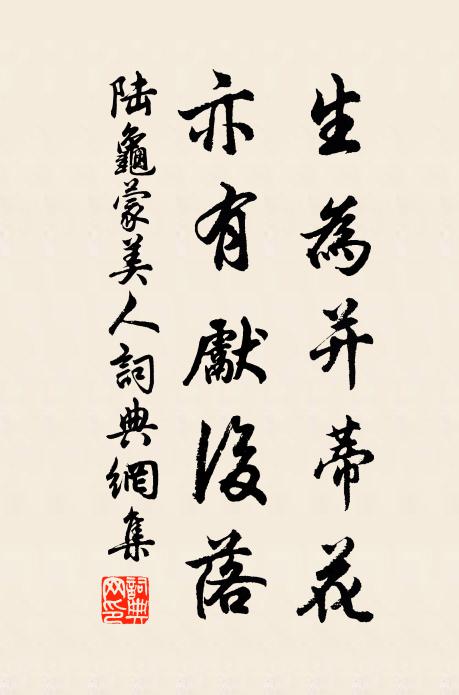 生為并蒂花
亦有獻後落
陸龜蒙美人詞典網集
詞典
网印